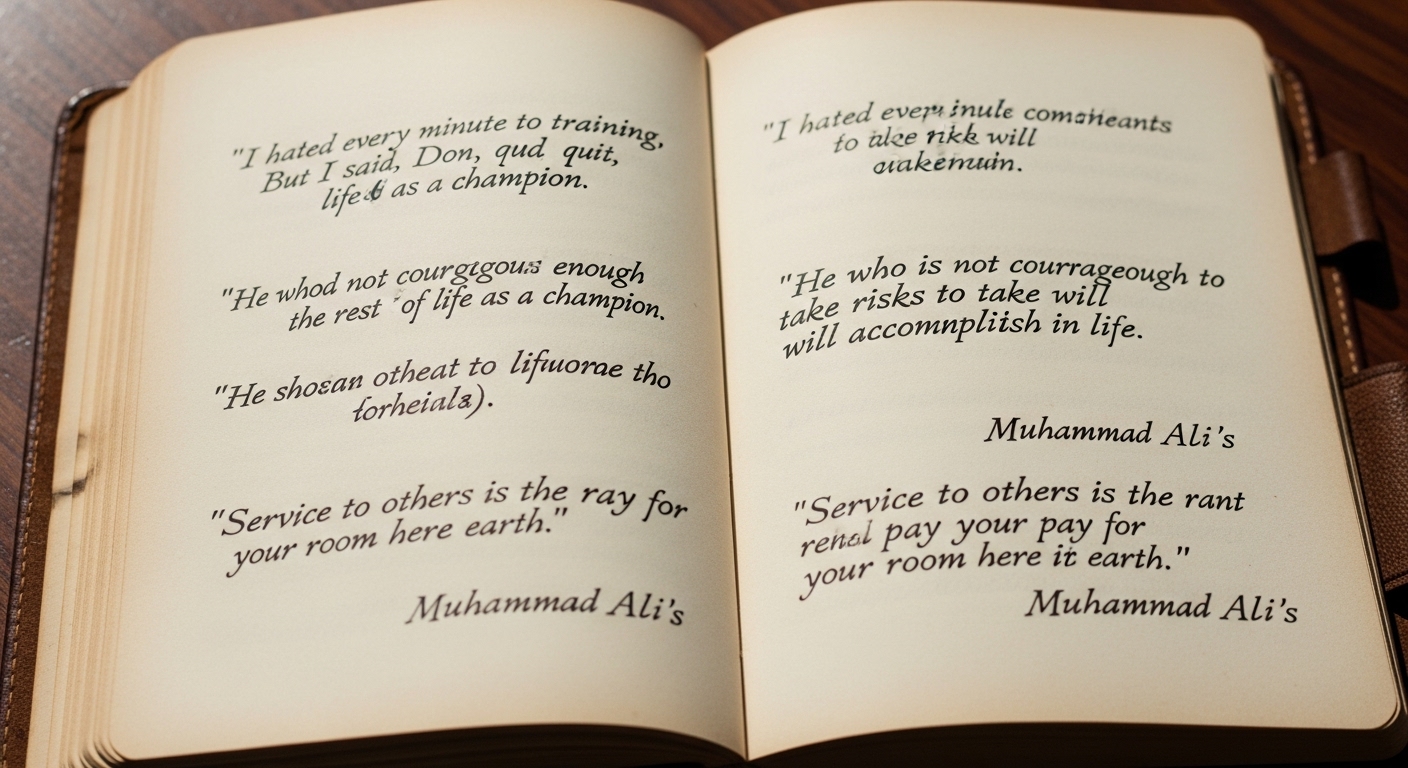 "I hated every minute to training,
But I said, Don, qud quit,
life as a champion.
"He whod not courgtgous enough
the rest of life as a champion.
"He shosan otheat to lifuorae tho
forheials).
"Service to others is the ray for
your room here earth."
Muhammad Ali's
"I hated every
to will
"He who is not courrageough to
take risks to take will
will accomnpliish in life.
Muhammad Ali's
"Service to others is the rant
renal pay your pay for
your room here it earth."
Muhammad Ali's